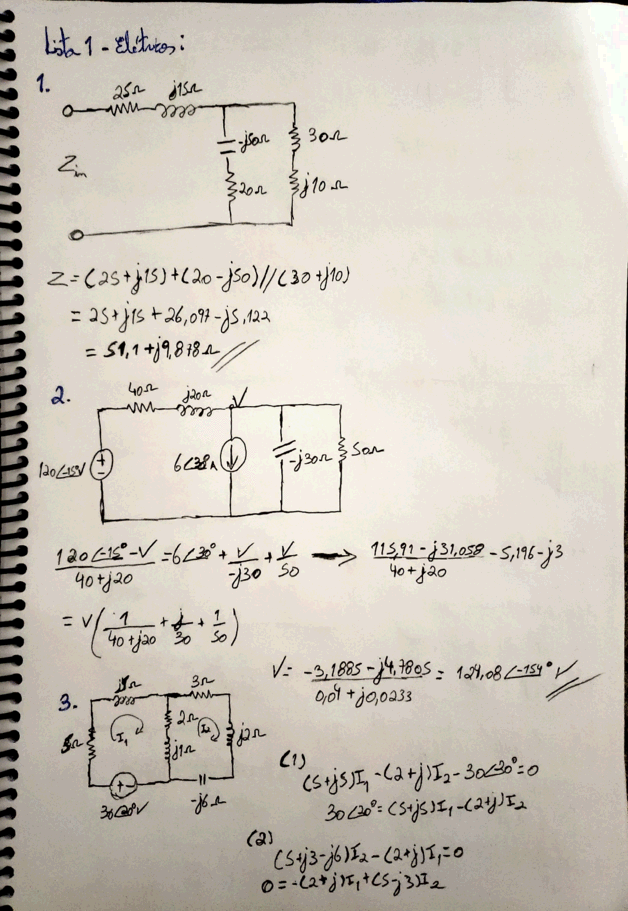 Lista 1 - Elétricos:
1.
25Ω j15Ω
-j50Ω 30Ω
Zin
20Ω j10Ω
Z=(25+j15)+(20-j50)//(30+j10)
= 25+j15+26,097-j5,122
= 51,1+j9,878Ω
2.
40Ω j20Ω V
120∠-15V 6∠30A -j30Ω 50Ω
120∠-15°-V / 40+j20 = 6∠30° + V/-j30 + V/50 → 115,91-j31,058 / 40+j20 - 5,196-j3
= V(1/40+j20 + j/30 + 1/50)
V= -3,1885-j4,7805 / 0,04+j0,0233 = 124,08∠-154° V
3.
3Ω
2Ω
I1 I2 j2Ω
j1Ω
30∠20°V -j6Ω
(1)
(5+j5)I1-(2+j)I2-30∠30°=0
30∠20°=(5+j5)I1-(2+j)I2
(2)
(5+j3-j6)I2-(2+j)I1=0
0=-(2+j)I1+(5-j3)I2